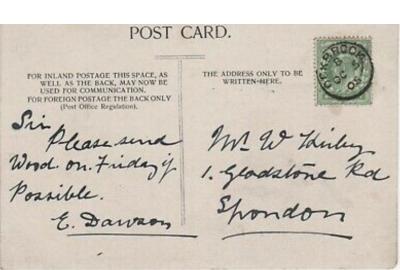 POST CARD.
FOR INLAND POSTAGE THIS SPACE, AS
WELL AS THE BACK, MAY NOW BE
USED FOR COMMUNICATION.
FOR FOREIGN POSTAGE THE BACK ONLY
(Post Office Regulation).
THE ADDRESS ONLY TO BE
WRITTEN HERE.
Sir
Please send
Wood on Friday if
Possible.
E. Dawson
Mr W Kirby
1. Gladstone Rd
Spondon